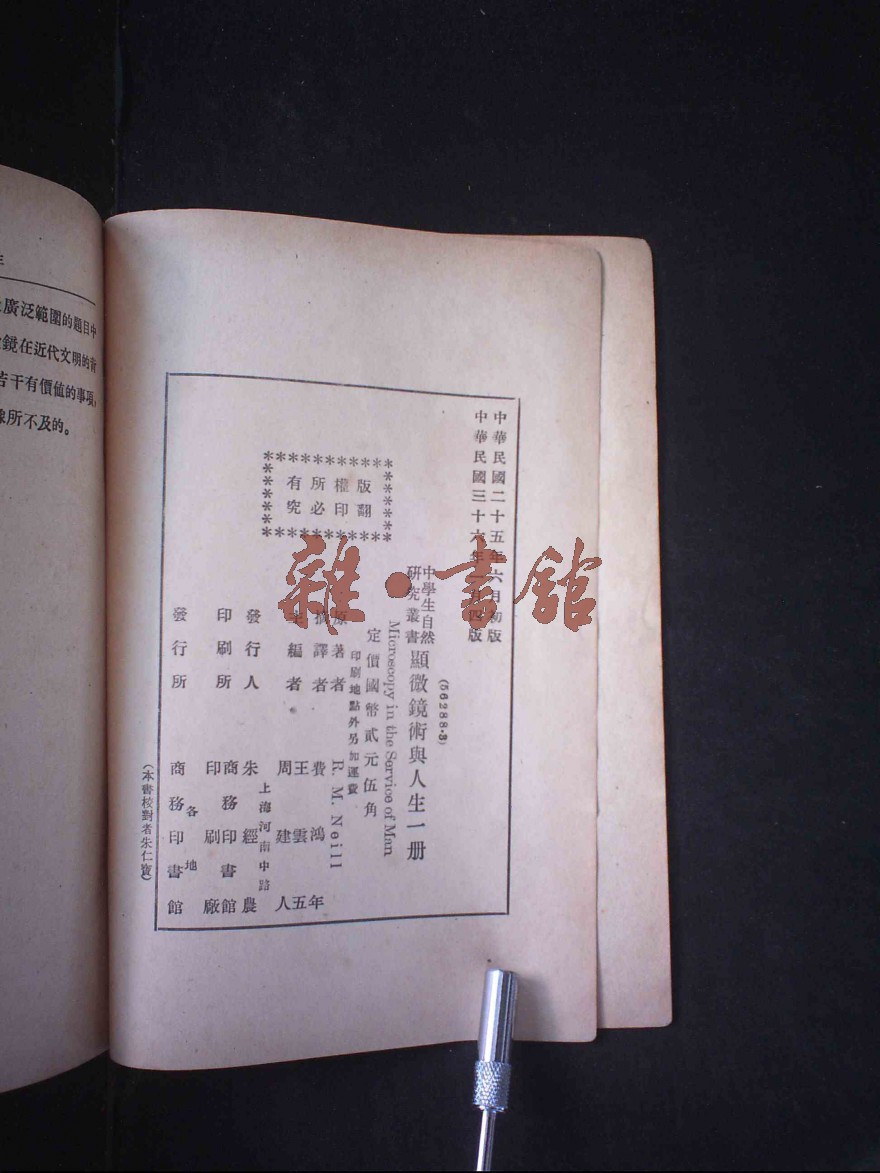 中華民國二十五年六月初版
中華民國三十六年 月四版
(56288·3)
中學生自然
研究叢書
顯微鏡術與人生一册
Microscopy in the Service of Man
定價國幣貳元伍角
印刷地點外另加運費
版權所有
翻印必究
原著者 R. M. Neill
摘譯者 費鴻年
主編者 王雲五
周建人
上海河南中路
發行人 朱經農
印刷所 商務印書館
印刷廠
各地
發行所 商務印書館
(本書校對者朱仁寶)
廣泛範圍的題目中
鏡在近代文明的
若干有價值的事項,
像所不及的。
雜·書館